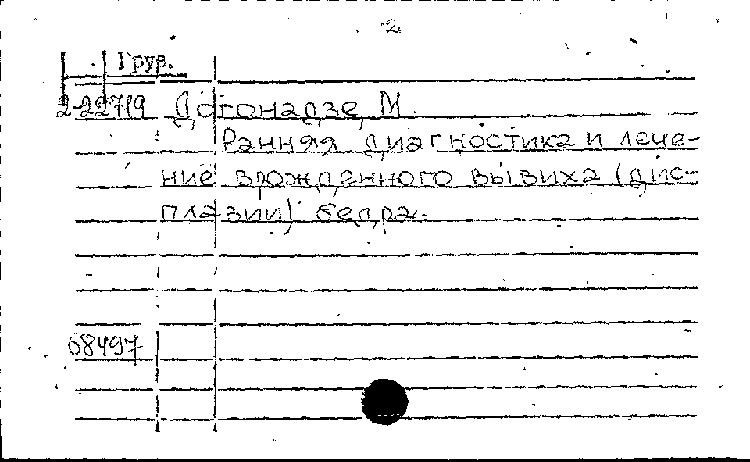 2
Груз.
2-22719 Догонадзе, М.
Ранняя диагностика и лече-
ние врожденного вывиха (дис-
плазии) бедра.
08497